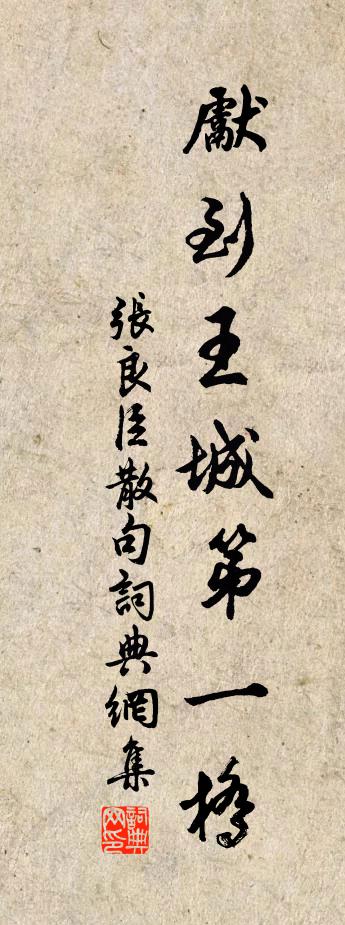 獻到王城第一橋
張良臣散句詞典網集
詞典网印